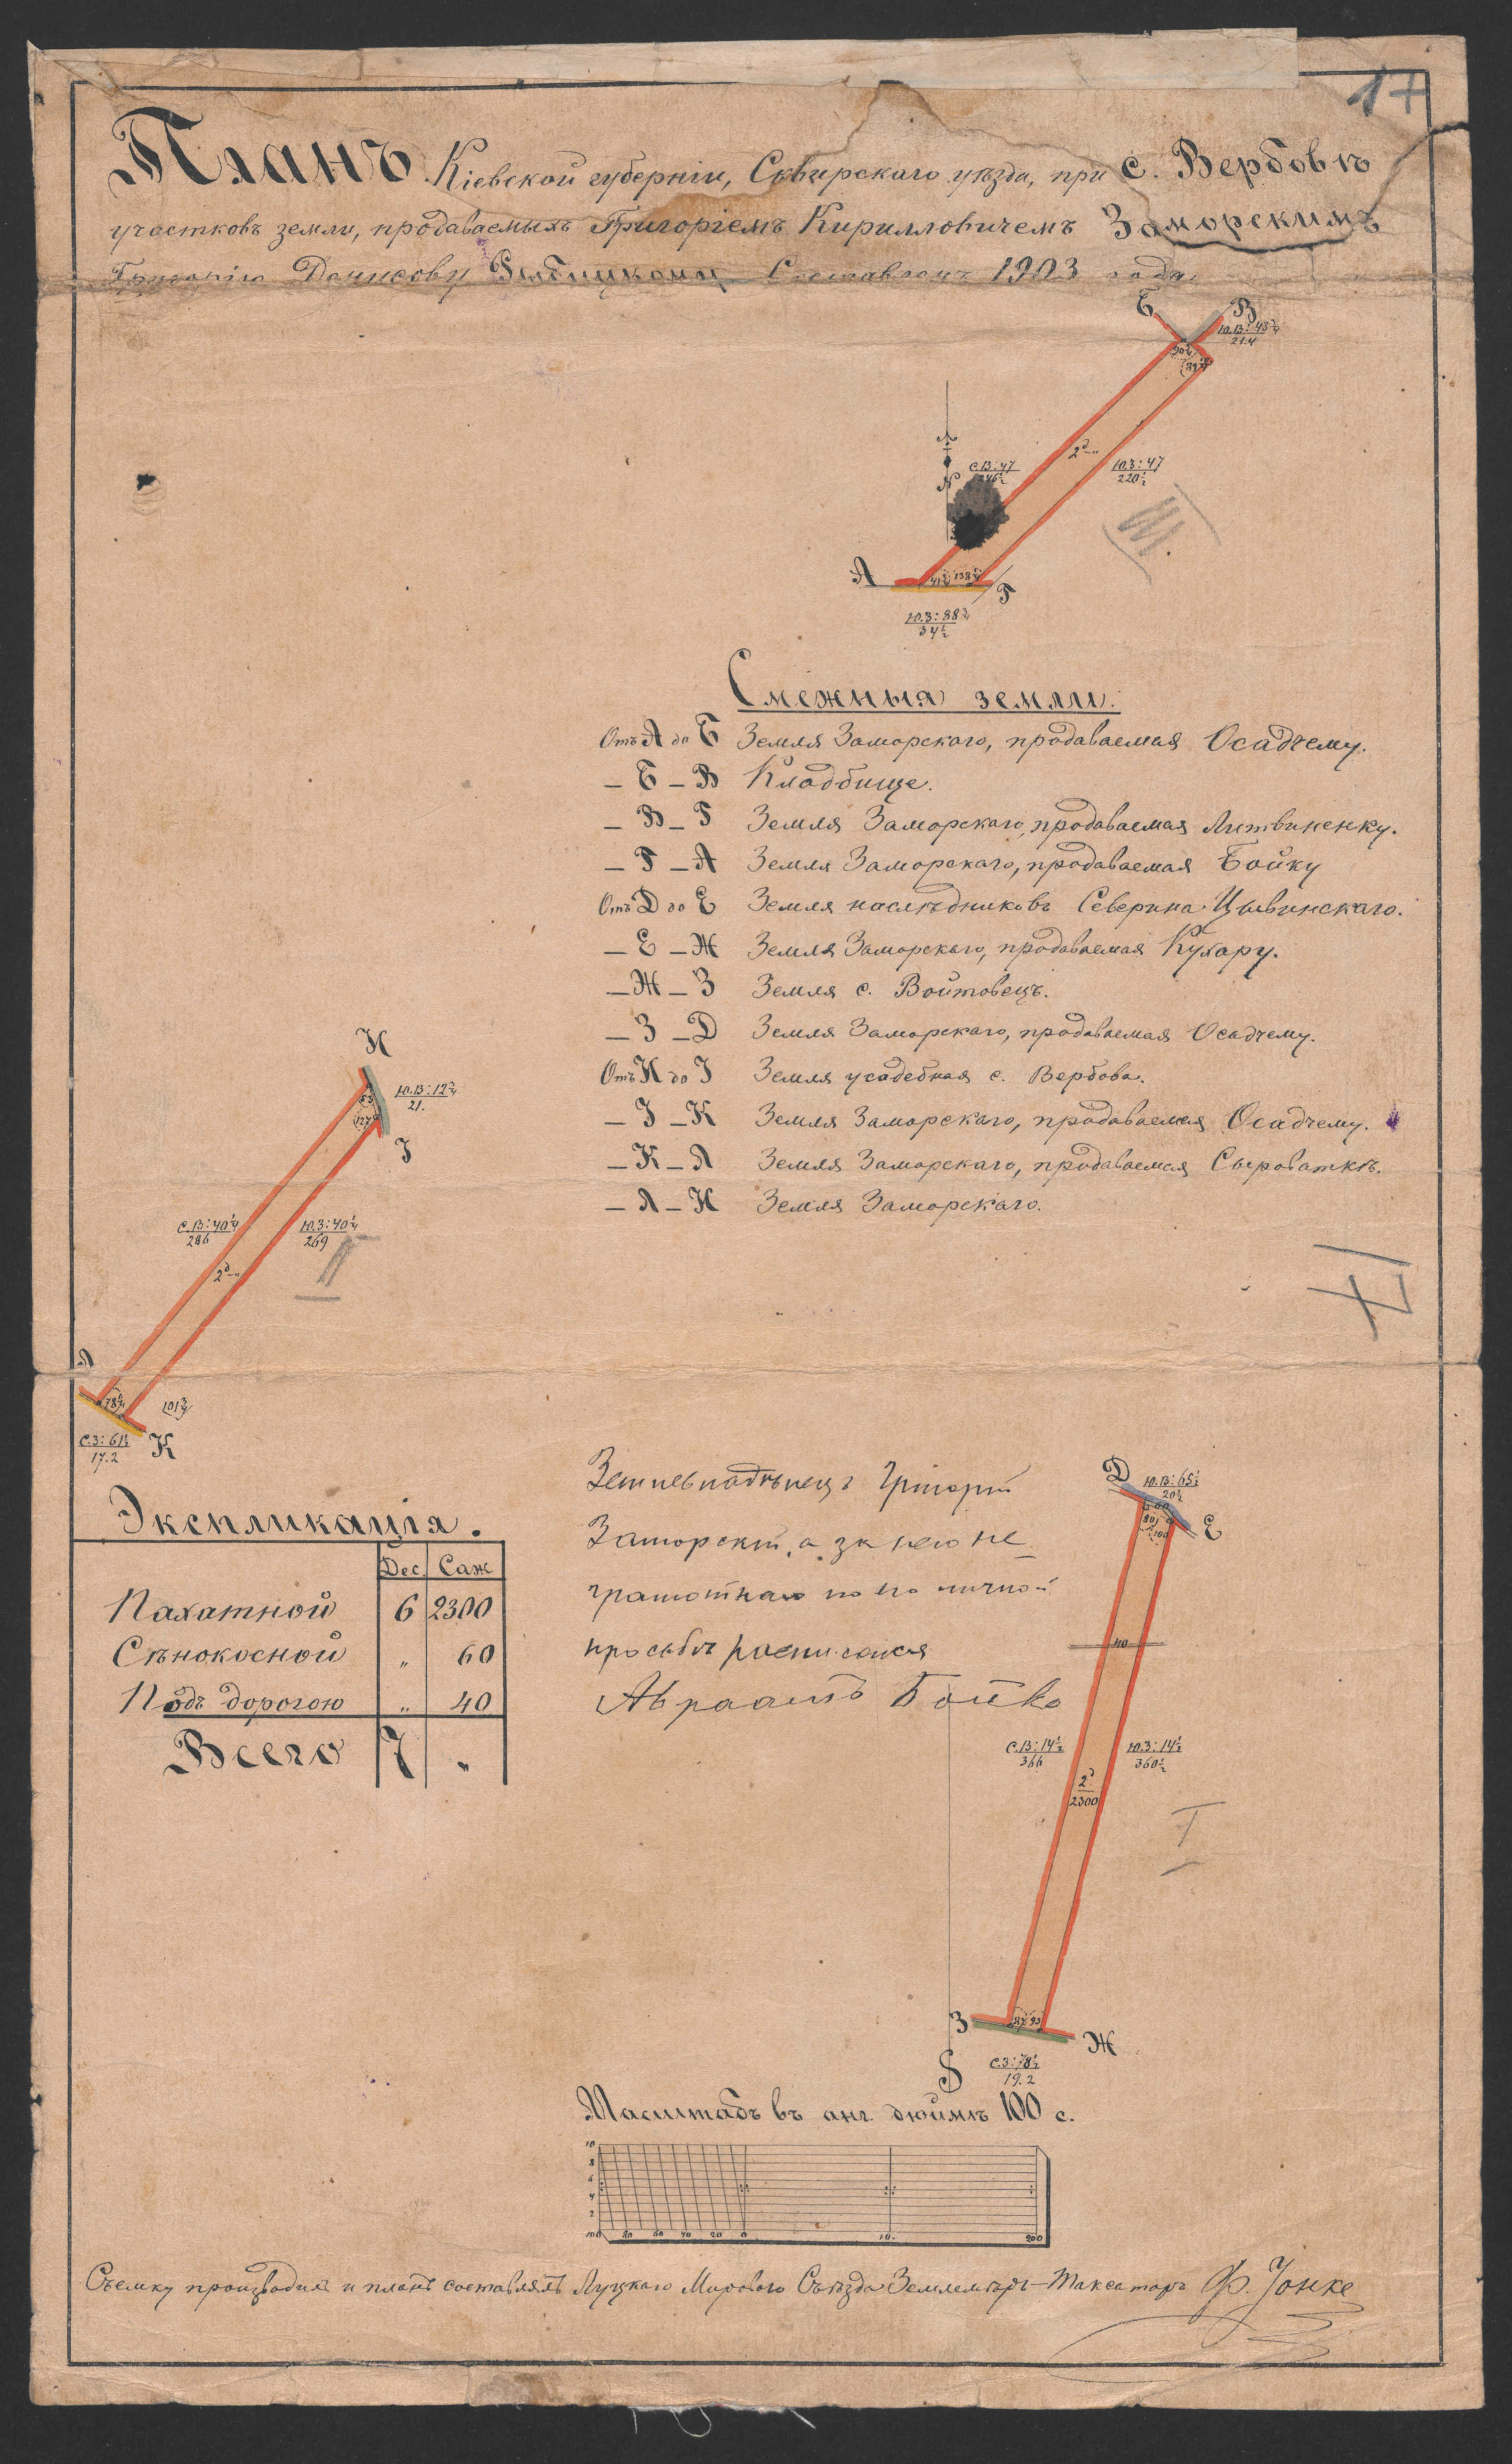 17
Планъ Кіевской губерніи, Сквирскаго уѣзда, при с. Вербовѣ
участковъ земли, продаваемыхъ Григоріемъ Кирилловичемъ Заморскимъ
Григорію Денисову Составленъ 1903 года.
Б В
Ю.В:43¾
21.4
С.В:47
N
2д.--
Ю.З:47
220½
III
А Г
41¾ 138¼
Ю.З:88¾
34½
Смежныя земли:
Отъ А до Б Земля Заморскаго, продаваемая Осадчему.
— Б — В Кладбище.
— В — Г Земля Заморскаго, продаваемая Литвиненку.
— Г — А Земля Заморскаго, продаваемая Бойку
Отъ Д до Е Земля наслѣдниковъ Северина Цывинскаго.
— Е — Ж Земля Заморскаго, продаваемая Кухару.
— Ж — З Земля с. Войтовецъ.
— З — Д Земля Заморскаго, продаваемая Осадчему.
Отъ И до І Земля усадебная с. Вербова.
— І — К Земля Заморскаго, продаваемая Осадчему.
— К — Л Земля Заморскаго, продаваемая Сыроваткѣ.
— Л — И Земля Заморскаго.
И
Ю.В:12¾
21.
І
С.В:40¼
286
Ю.З:40¼
269
2д.--
II
17
Л
78¼ 101¾
С.З:61½
17.2
К
Экспликація.
Дес. Саж
Пахатной 6 2300
Сѣнокосной " 60
Подъ дорогою " 40
Всего 7 "
Землевладѣлецъ Григорій
Заморскій, а за него не
грамотнаго по его личной
просьбѣ росписался
Авраамъ Бойко
Д
Ю.В:65½
20½
Е
60
80 100
40
С.В:14½
366
Ю.З:14½
360½
2д
2300
I
З Ж
87 93
С.З:78½
19.2
S
Масштабъ въ анг. дюймѣ 100 с.
10
8
6
4
2
100 80 60 40 20 0 200
Съемку производилъ и планъ составлялъ Луцкаго Мирового Съѣзда Землемѣръ-Таксаторъ Ф. Іонке